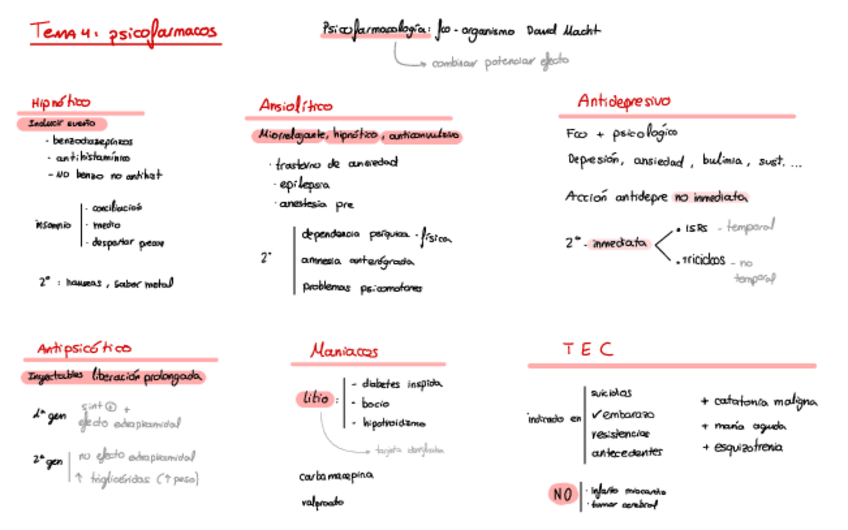 TEMA 4: psicofarmacos
Psicofarmacología: fco - organismo David Macht
combinar potenciar efecto
Hipnótico
Inducir sueño
- benzodiazepínicos
- antihistamínico
- NO benzo no antihist
insomnio
- conciliación
- medio
- despertar precoz
2º : nauseas, sabor metal
Ansiolítico
Miorrelajante, hipnótico, anticonvulsivo
· trastorno de ansiedad
· epilepsia
· anestesia pre
2º
dependencia psíquica - física
amnesia anterógrada
problemas psicomotores
Antidepresivo
Fco + psicologico
Depresión, ansiedad, bulimia, sust. ...
Acción antidepre no inmediata
2º - inmediata
· ISRS - temporal
· triciclicos - no temporal
Antipsicótico
Inyectables liberación prolongada
1ª gen
sint ⊕ +
efecto extrapiramidal
2ª gen
no efecto extrapiramidal
↑ triglicéridos (↑ peso)
Maniacos
litio :
- diabetes insipida
- bocio
- hipotiroidismo
tarjeta
carbamacepina
valproato
TEC
indicado en
suicidas
√ embarazo
resistencias
antecedentes
+ catatonía maligna
+ manía aguda
+ esquizofrenia
NO
· infarto miocardio
· tumor cerebral